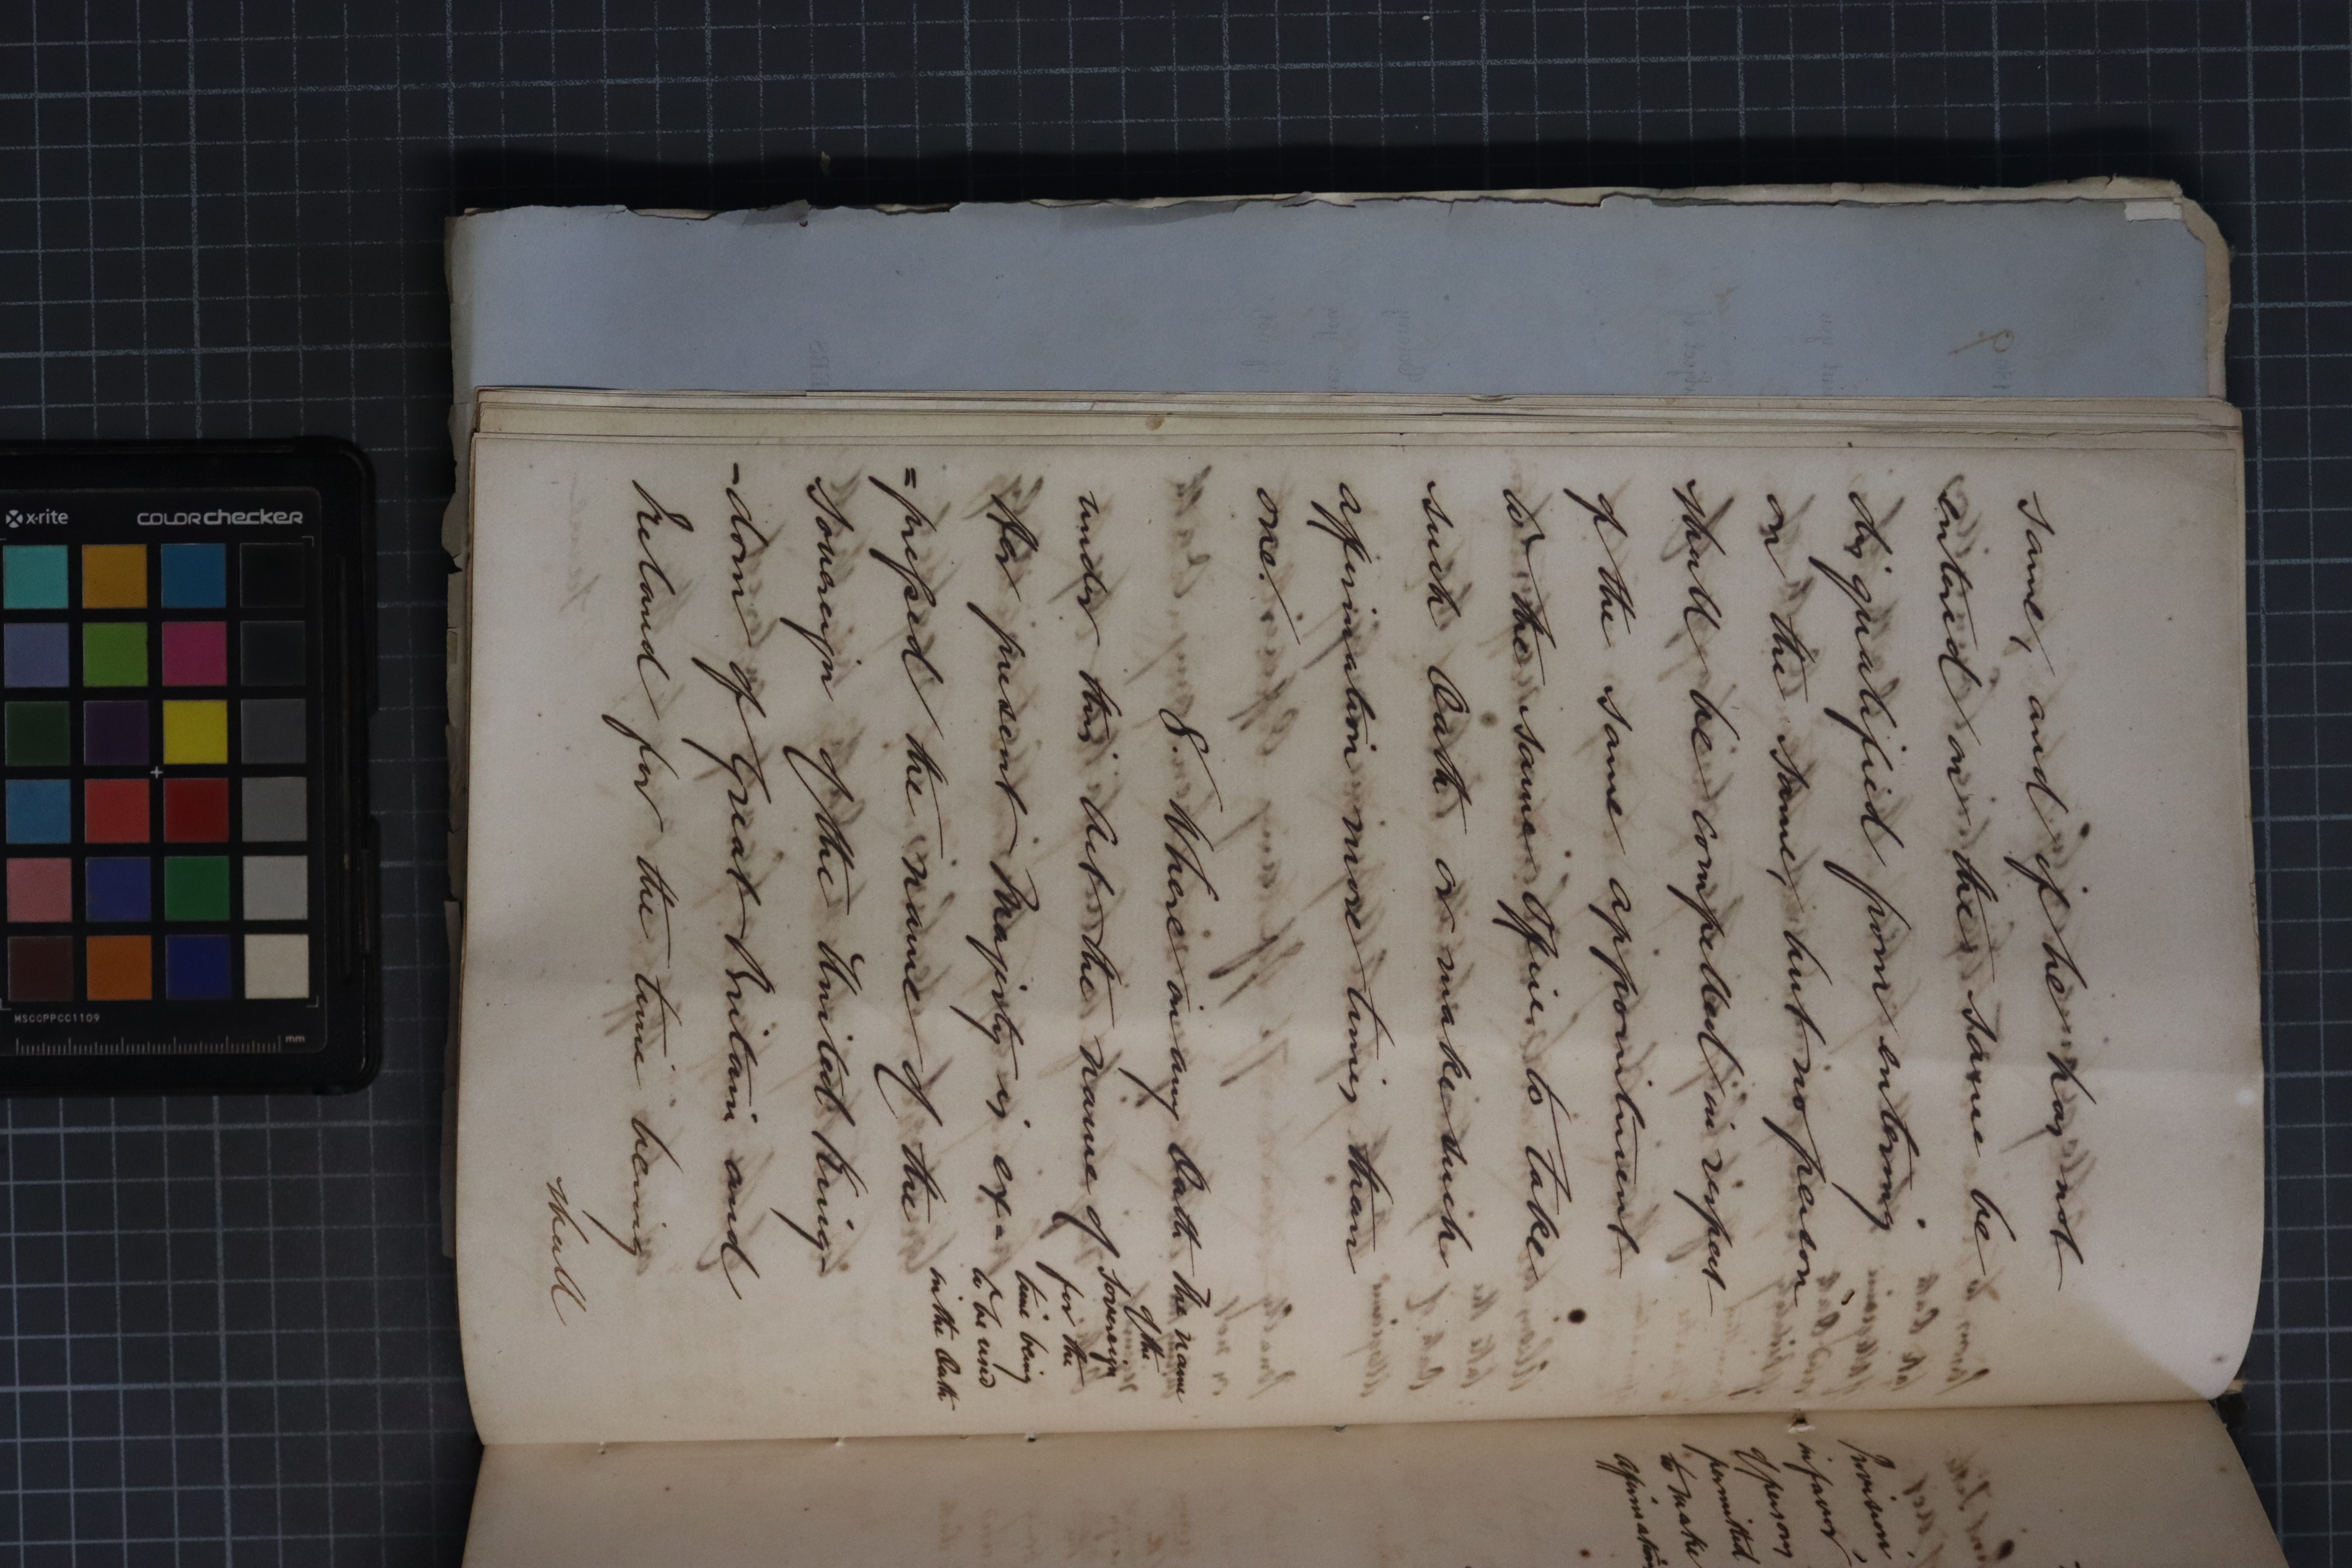 same, and if he has not
entered on the same be
disqualified from entering
on the same, but no person
shall be compelled in respect
of the same appointment
to the same Office to take
such Oath or make such
affirmation more times than
one.
8. Where in any Oath
under this Act the name of
Her present Majesty is ex=
=pressed the name of the
Sovereign of the United King-
-dom of Great Britain and
Ireland for the time being
shall
The name
of the
Sovereign
for the
time being
to be used
in the Oath
Provision
in favor
of persons
permitted
to make
affirmation
x-rite
COLORCHECKER
MSCCPPCC1109
mm